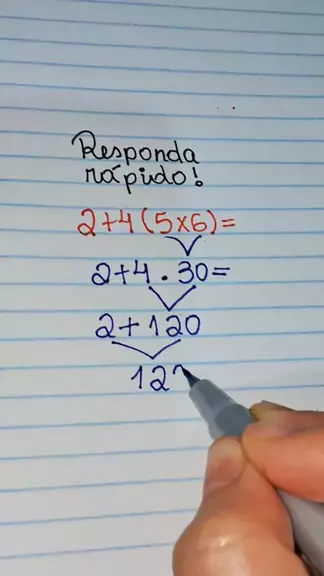 Responda
rápido!
2+4(5x6)=
2+4.30=
2+120
12